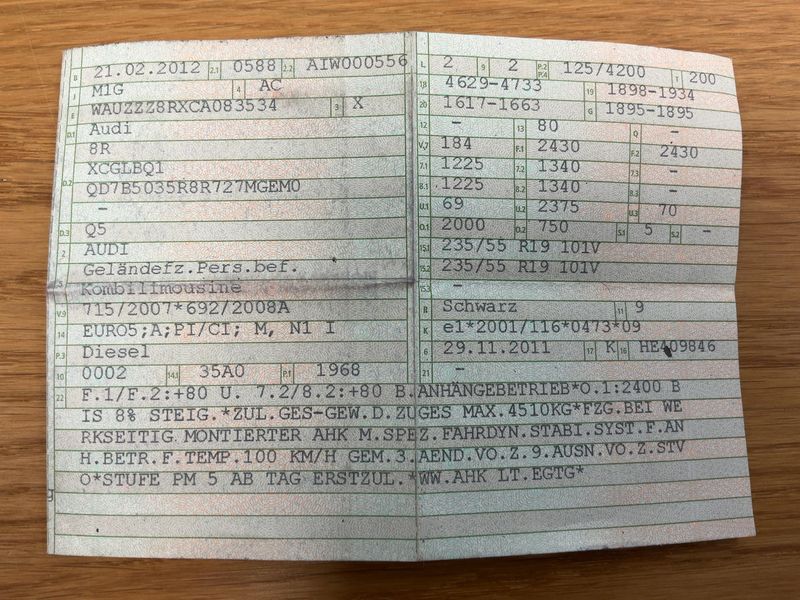 B 21.02.2012 2.1 0588 2.2 AIW000556
J M1G 4 AC
E WAUZZZ8RXCA083534 3 X
D.1 Audi
8R
D.2 XCGLBQ1
QD7B5035R8R727MGEM0
–
D.3 Q5
2 AUDI
5 Geländefz.Pers.bef.
Kombilimousine
V.9 715/2007*692/2008A
14 EURO5;A;PI/CI; M, N1 I
P.3 Diesel
10 0002 14.1 35A0 P.1 1968
L 2 9 2 P.2 P.4 125/4200 T 200
18 4629-4733 19 1898-1934
20 1617-1663 G 1895-1895
12 – 13 80 Q –
V.7 184 F.1 2430 F.2 2430
7.1 1225 7.2 1340 7.3 –
8.1 1225 8.2 1340 8.3 –
U.1 69 U.2 2375 U.3 70
O.1 2000 O.2 750 S.1 5 S.2 –
15.1 235/55 R19 101V
15.2 235/55 R19 101V
15.3 –
R Schwarz 11 9
K e1*2001/116*0473*09
6 29.11.2011 17 K 16 HE409846
21 –
22 F.1/F.2:+80 U. 7.2/8.2:+80 B.ANHÄNGEBETRIEB*O.1:2400 B
IS 8% STEIG.*ZUL.GES-GEW.D.ZUGES MAX.4510KG*FZG.BEI WE
RKSEITIG MONTIERTER AHK M.SPEZ.FAHRDYN.STABI.SYST.F.AN
H.BETR.F.TEMP.100 KM/H GEM.3.AEND.VO.Z.9.AUSN.VO.Z.STV
O*STUFE PM 5 AB TAG ERSTZUL.*WW.AHK LT.EGTG*